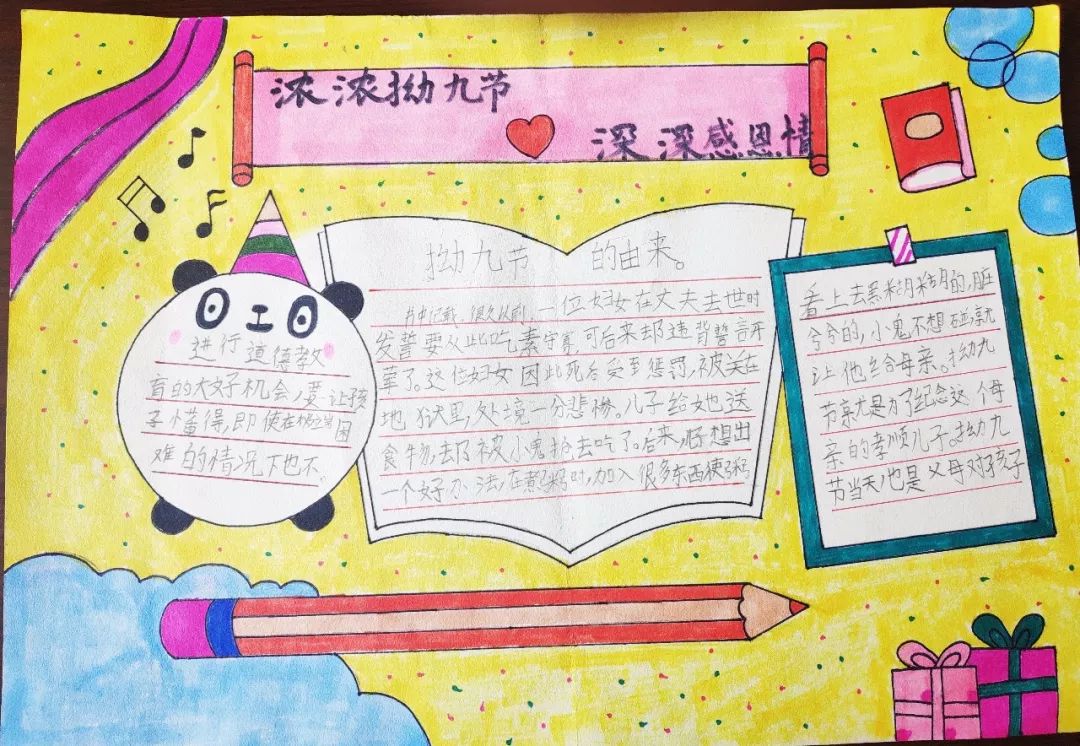 浓浓拗九节
深深感恩情
拗九节 的由来。
书中记载，很久以前，一位妇女在丈夫去世时
发誓要从此吃素守寡，可后来却违背誓言开
荤了。这位妇女因此死后受到惩罚，被关在
地狱里，处境十分悲惨。儿子给她送
食物，却被小鬼抢去吃了。后来，儿子想出
一个好办法，在煮粥时，加入很多东西使粥
看上去黑糊糊的，脏
兮兮的，小鬼不想碰，就
让他给母亲。拗九
节就是为了纪念这个母
亲的孝顺儿子。拗九
节当天，也是父母对孩子
进行道德教
育的大好机会，要让孩
子懂得，即使在极端困
难的情况下也不